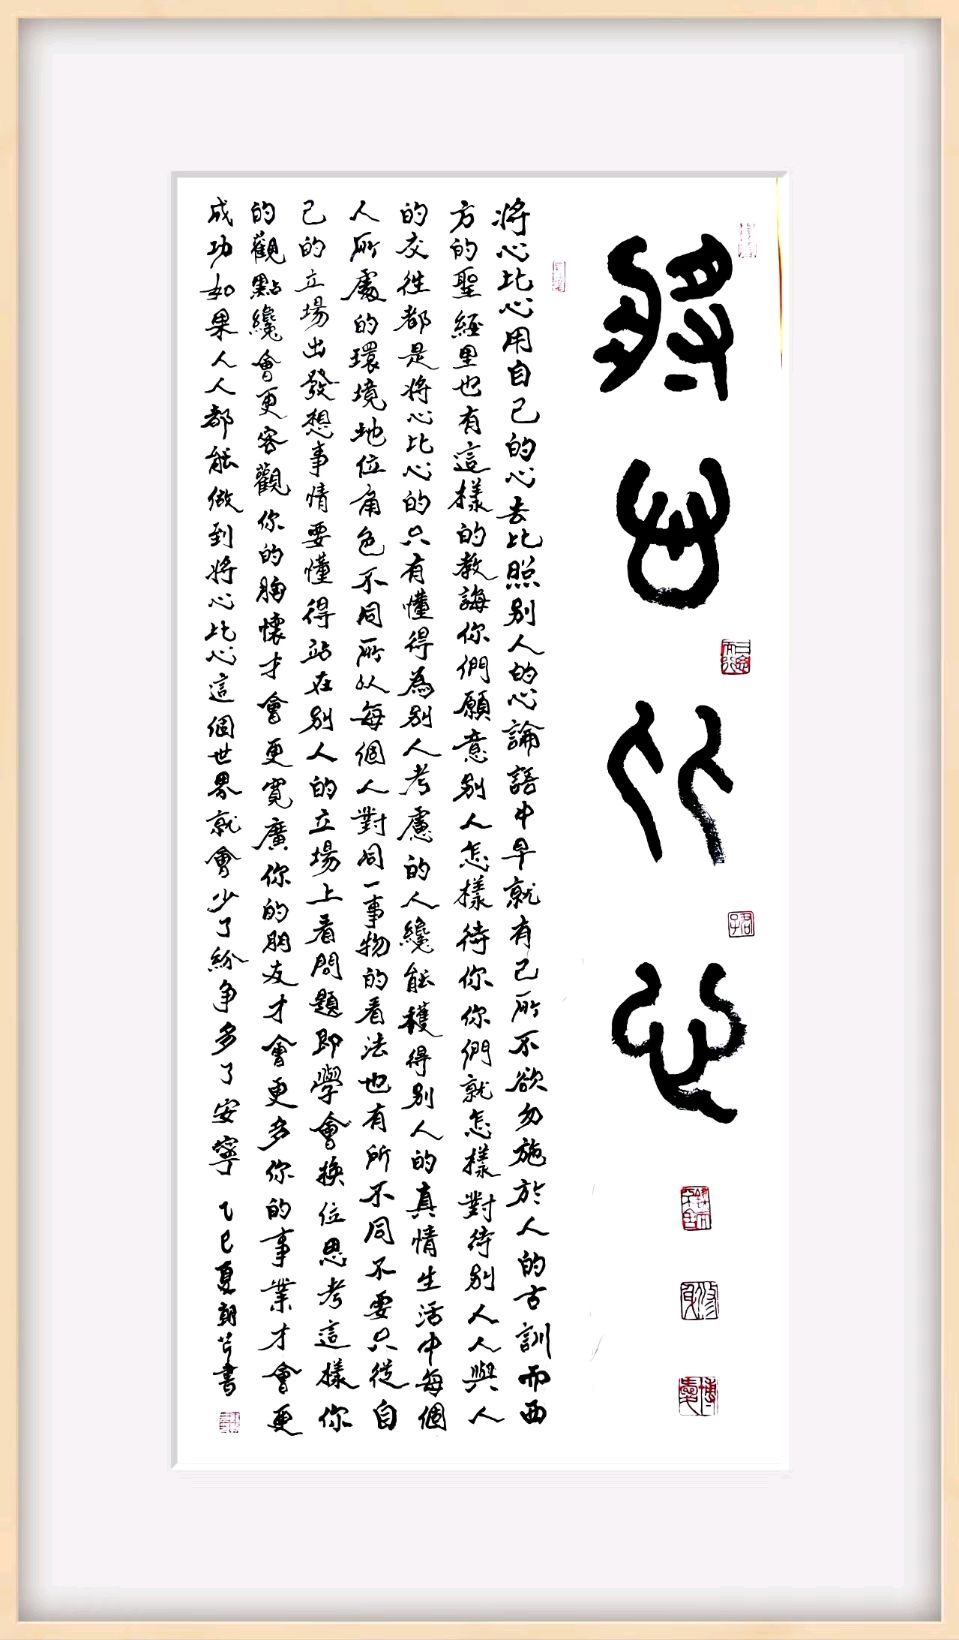 將心比心
將心比心用自己的心去比照别人的心論語中早就有己所不欲勿施於人的古訓而西
方的聖經里也有這樣的教誨你們願意别人怎樣待你你們就怎樣對待别人人與人
的交往都是將心比心的只有懂得為别人考慮的人纔能獲得别人的真情生活中每個
人所處的環境地位角色不同所以每個人對同一事物的看法也有所不同不要只從自
己的立場出發想事情要懂得站在别人的立場上看問題即學會换位思考這樣你
的觀點纔會更客觀你的胸懷才會更寬廣你的朋友才會更多你的事業才會更
成功如果人人都能做到將心比心這個世界就會少了紛争多了安寧 乙巳夏 書
君子
博愛